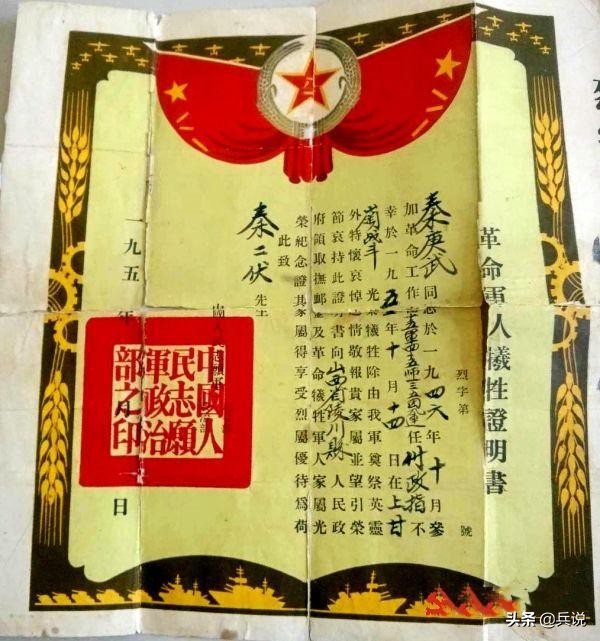 八一
八一
八一
革命軍人犧牲證明書
烈字第 號
秦庚武同志於一九四六年十月參
加革命工作五軍四五師三五團連任付政指不
幸於一九五二年十月十四日在上甘
嶺戰斗光榮犧牲除由我軍奠祭英靈
外特懷哀悼之情敬報貴家屬並望引榮
節哀持此證明書向山西省陵川縣人民政
府領取撫卹金及革命犧牲軍人家屬光
榮紀念證其家屬得享受烈屬優待為荷
此致
秦二伏 先生
中國人
民志願
軍政治
部之印
一九五 年 月 日
头条 @兵说